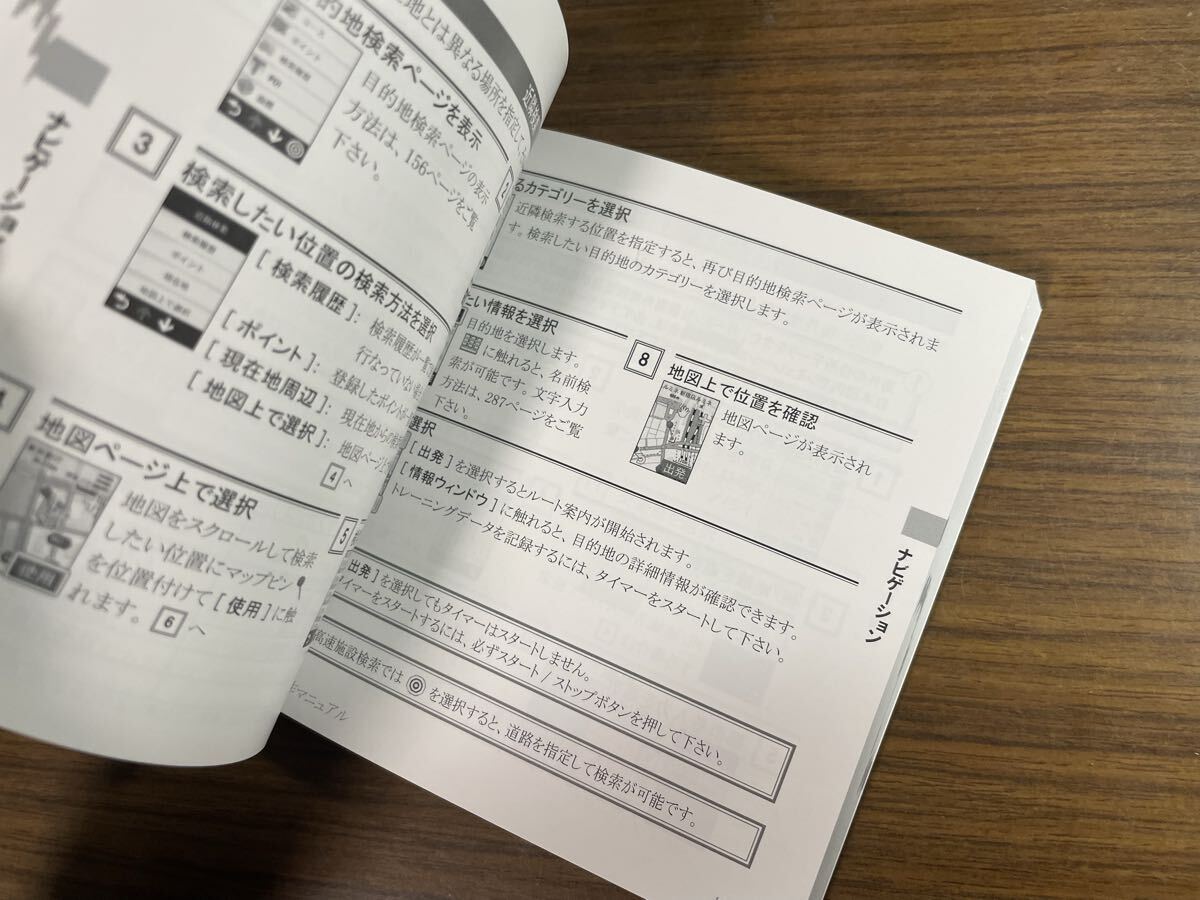 ナビゲーション
地とは異なる場所を指定して
的地検索ページを表示
ポイント
検索履歴
POI
目的地検索ページの表示
方法は、156ページをご覧
下さい。
3
検索したい位置の検索方法を選択
検索履歴
ポイント
現在地
地図上で選択
[ 検索履歴 ]： 検索履歴が一覧
行なっていない場合
[ ポイント ]： 登録したポイント
[ 現在地周辺 ]： 現在地からの
[ 地図上で選択 ]： 地図ページ
4 へ
地図ページ上で選択
使用
地図をスクロールして検索
したい位置にマップピン
を位置付けて [ 使用 ] に触
れます。 6 へ
5
るカテゴリーを選択
近隣検索する位置を指定すると、再び目的地検索ページが表示されま
す。検索したい目的地のカテゴリーを選択します。
たい情報を選択
目的地を選択します。
に触れると、名前検
索が可能です。文字入力
方法は、287ページをご覧
下さい。
8
地図上で位置を確認
出発
地図ページが表示され
ます。
選択
[ 出発 ] を選択するとルート案内が開始されます。
[ 情報ウィンドウ ] に触れると、目的地の詳細情報が確認できます。
トレーニングデータを記録するには、タイマーをスタートして下さい。
出発 ] を選択してもタイマーはスタートしません。
タイマーをスタートするには、必ずスタート / ストップボタンを押して下さい。
高速施設検索では ◎ を選択すると、道路を指定して検索が可能です。
マニュアル
ナビゲーション